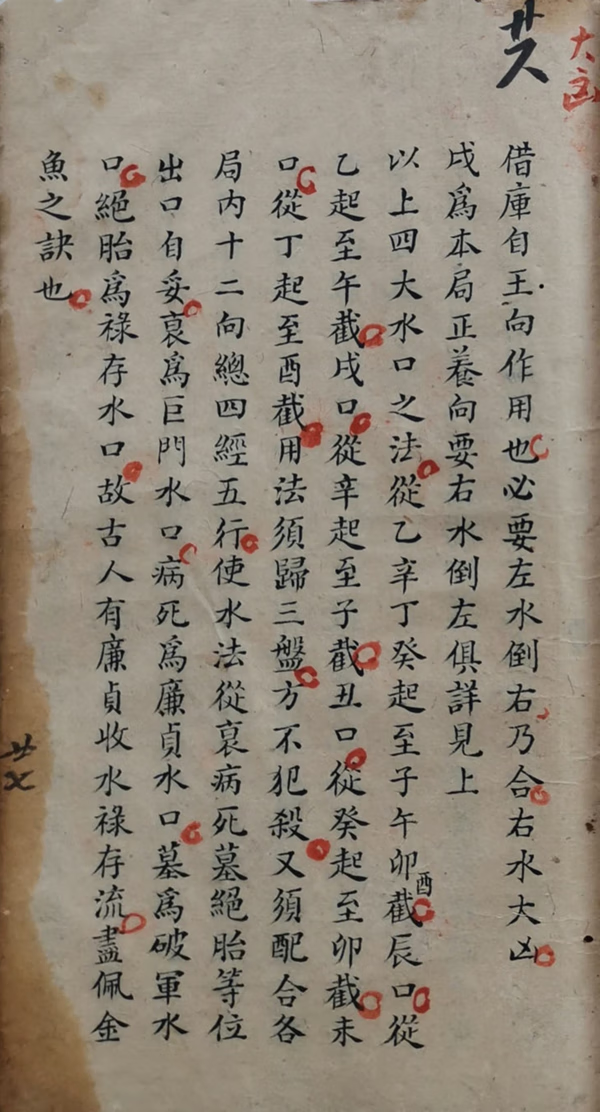 大凶
借庫自王向作用也必要左水倒右乃合右水大凶
戌爲本局正養向要右水倒左俱詳見上
以上四大水口之法從乙辛丁癸起至子午卯酉截辰口從
乙起至午截戌口從辛起至子截丑口從癸起至卯截未
口從丁起至酉截用法須歸三盤方不犯殺又須配合各
局内十二向總四經五行使水法從衰病死墓絕胎等位
出口自妥衰爲巨門水口病死爲廉貞水口墓爲破軍水
口絕胎爲祿存水口故古人有廉貞收水祿存流盡佩金
魚之訣也